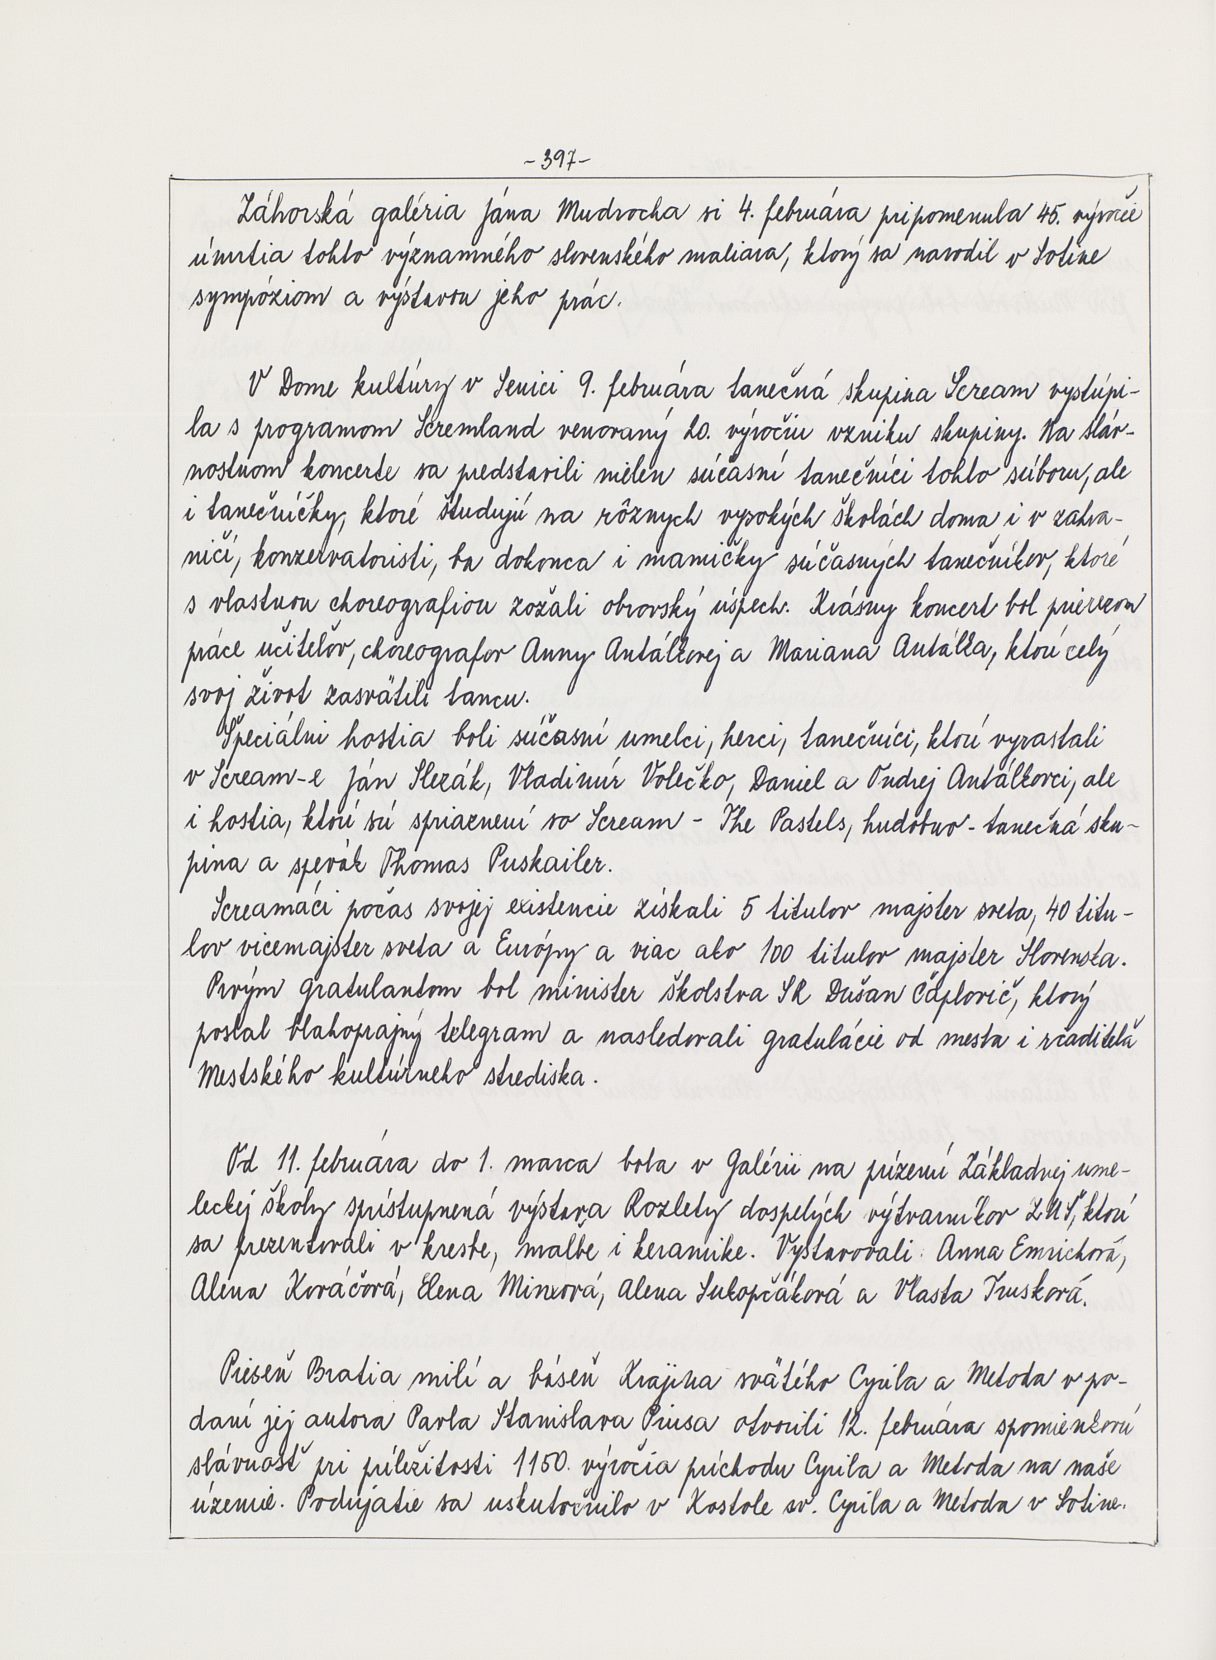 -397-
Záhorská galéria Jána Mudrocha si 4. februára pripomenula 45. výročie
úmrtia tohto významného slovenského maliara, ktorý sa narodil v Sotine
sympóziom a výstavou jeho prác.
V Dome kultúry v Senici 9. februára tanečná skupina Scream vystúpi-
la s programom Scremland venovaný 20. výročiu vzniku skupiny. Na sláv-
nostnom koncerte sa predstavili nielen súčasní tanečníci tohto súboru, ale
i tanečníčky, ktoré študujú na rôznych vysokých školách doma i v zahra-
ničí, konzervatoristi, ba dokonca i mamičky súčasných tanečníkov, ktoré
s vlastnou choreografiou zožali obrovský úspech. Krásny koncert bol prierezom
práce učiteľov, choreografov Anny Antálkovej a Mariana Antálka, ktorí celý
svoj život zasvätili tancu.
Špeciálni hostia boli súčasní umelci, herci, tanečníci, ktorí vyrastali
v Scream-e Ján Slezák, Vladimír Volečko, Daniel a Ondrej Antálkovci, ale
i hostia, ktorí sú spriaznení so Scream - The Pastels, hudobno-tanečná sku-
pina a spevák Thomas Puskailer.
Screamáci počas svojej existencie získali 5 titulov majster sveta, 40 titu-
lov vicemajster sveta a Európy a viac ako 100 titulov majster Slovenska.
Prvým gratulantom bol minister školstva SR Dušan Čaplovič, ktorý
poslal blahoprajný telegram a nasledovali gratulácie od mesta i riaditeľa
Mestského kultúrneho strediska.
Od 11. februára do 1. marca bola v Galérii na prízemí Základnej ume-
leckej školy sprístupnená výstava Rozlety dospelých výtvarníkov ZUŠ, ktorí
sa prezentovali v kresbe, maľbe i keramike. Vystavovali: Anna Emrichová,
Alena Kováčová, Elena Minxová, Alena Sukopčáková a Vlasta Trusková.
Pieseň Bratia milí a báseň Krajina svätého Cyrila a Metoda v po-
daní jej autora Pavla Stanislava Piusa otvorili 12. februára spomienkovú
slávnosť pri príležitosti 1150. výročia príchodu Cyrila a Metoda na naše
územie. Podujatie sa uskutočnilo v Kostole sv. Cyrila a Metoda v Sotine.